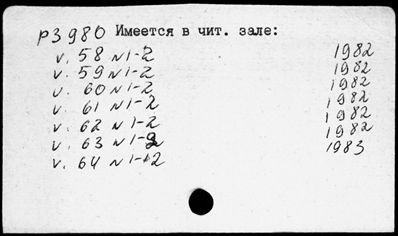 р3980 Имеется в чит. зале:
v. 58 N1-2 1982
v. 59 N1-2 1982
v. 60 N1-2 1982
v. 61 N1-2 1982
v. 62 N1-2 1982
v. 63 N1-2 1982
v. 64 N1-2 1983